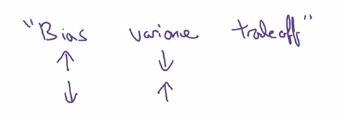 "Bias variance tradeoff"
↑ ↓
↓ ↑